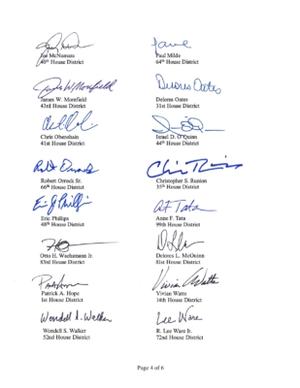 Joe McNamara
Paul Milde
40th House District
64th House District
James W. Morefield
Delores Oates
James W. Morefield
Delores Oates
43rd House District
31st House District
Chris Obenshain
Israel D. O'Quinn
41st House District
44th House District
Robert Orrock Sr.
Christopher S. Runion
66th House District
35th House District
Eric J Phillips
A.F. Tata
Eric Phillips
Anne F. Tata
48th House District
99th House District
Otto H. Wachsmann Jr.
Delores L. McQuinn
83rd House District
81st House District
Vivian Watts
Patrick A. Hope
Vivian Watts
1st House District
14th House District
Wendell S. Walker
Lee Ware
Wendell S. Walker
R. Lee Ware Jr.
52nd House District
72nd House District
Page 4 of 6